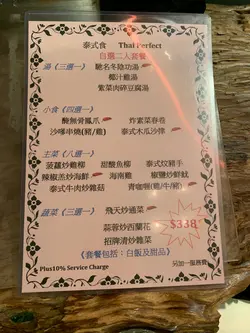 泰式食 Thai Perfect
自選二人套餐
湯（三選一） 馳名冬陰功湯
椰汁雞湯
紫菜肉碎豆腐湯
小食（四選一）
醃無骨鳳爪 炸素菜春卷
沙嗲串燒(豬/雞) 泰式木瓜沙律
主菜（八選一）
菠蘿炒雞柳 甜酸魚柳 泰式炆豬手
辣椒羔炒海鮮 海南雞 椒鹽炒鮮魷
泰式牛肉炒雜菇 青咖喱(雞/牛/豬)
蔬菜（三選一） 飛天炒通菜
蒜蓉炒西蘭花
招牌清炒雜菜
$338
《套餐包括：白飯及甜品》
Plus10% Service Charge 另加一服務費